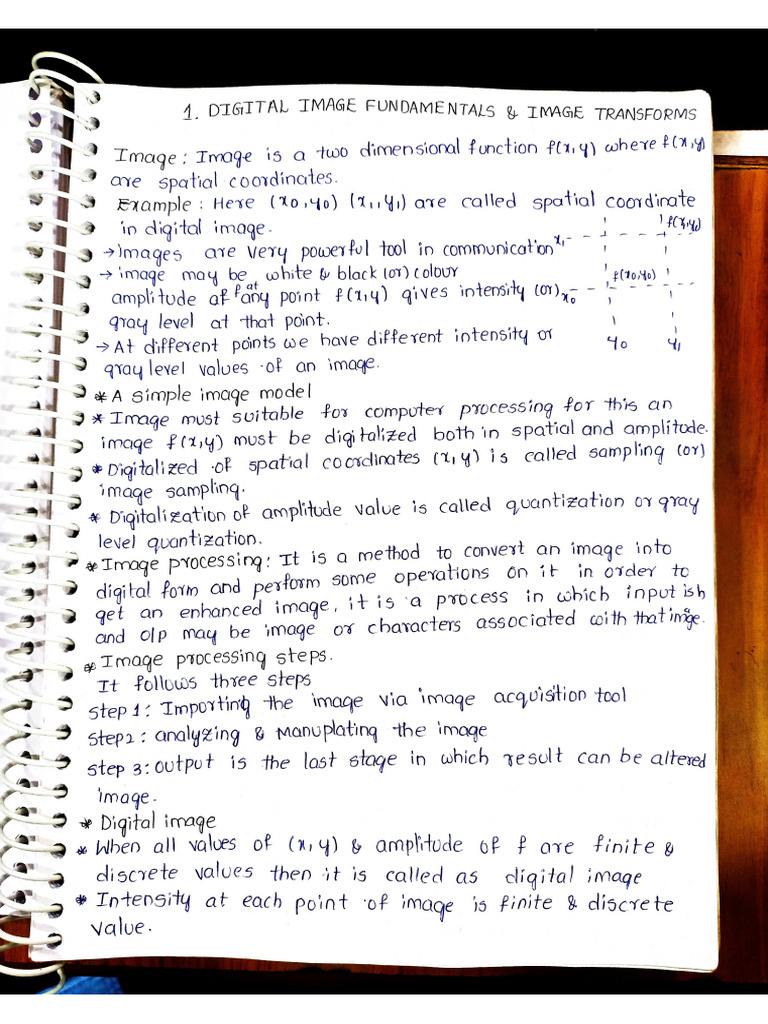 1. DIGITAL IMAGE FUNDAMENTALS & IMAGE TRANSFORMS
Image: Image is a two dimensional function f(x,y) where f(x,y)
are spatial coordinates.
Example: Here (x0,y0) (x1,y1) are called spatial coordinate
in digital image.
→ Images are very powerful tool in communication
→ image may be white & black (or) colour
amplitude of f at any point f(x,y) gives intensity (or)
gray level at that point.
→ At different points we have different intensity or
gray level values of an image.
x1
f(x1,y1)
x0
f(x0,y0)
y0 y1
* A simple image model
* Image must suitable for computer processing for this an
image f(x,y) must be digitalized both in spatial and amplitude.
* Digitalized of spatial coordinates (x,y) is called sampling (or)
image sampling.
* Digitalization of amplitude value is called quantization or gray
level quantization.
* Image processing: It is a method to convert an image into
digital form and perform some operations on it in order to
get an enhanced image, it is a process in which input ish
and O/P may be image or characters associated with that image.
* Image processing steps.
It follows three steps
step 1: Importing the image via image acquisition tool
step2: analyzing & Manuplating the image
step 3: output is the last stage in which result can be altered
image.
* Digital image
* When all values of (x,y) & amplitude of f are finite &
discrete values then it is called as digital image
* Intensity at each point of image is finite & discrete
value.